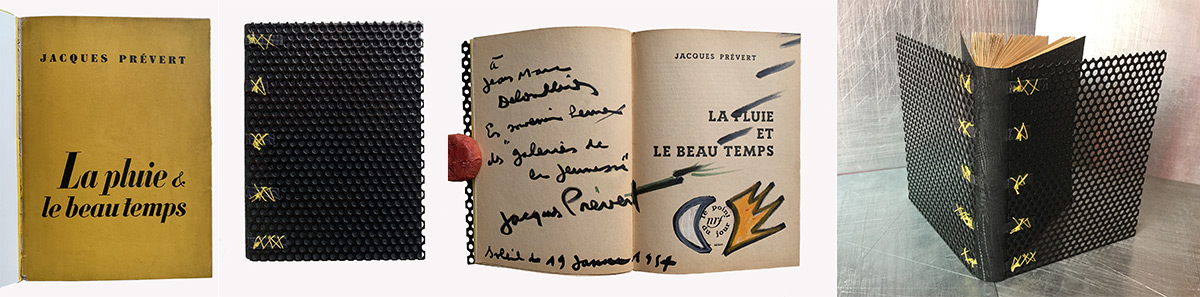 JACQUES PRÉVERT
La pluie &
le beau temps
à
Jean Marc
En souvenir
des "galeries de
la jeunesse"
Jacques Prévert
Soleil du 19 1954
JACQUES PRÉVERT
LA PLUIE
ET
LE BEAU TEMPS
le point
nrf
du jour